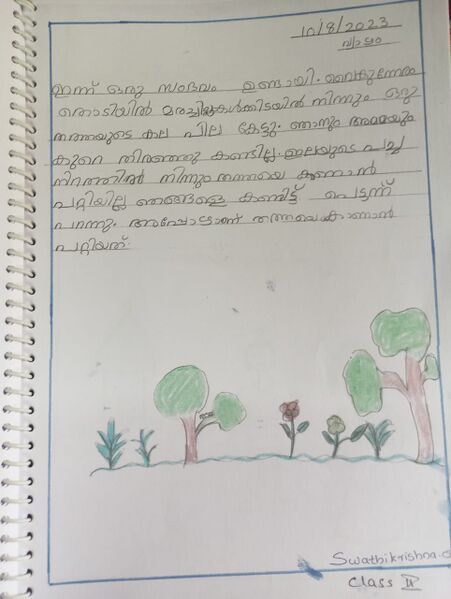 10/8/2023
വ്യാഴം
ഇന്ന് ഒരു സംഭവം ഉണ്ടായി. വൈകുന്നേരം
തൊടിയിൽ മരച്ചില്ലകൾക്കിടയിൽ നിന്നും ഒരു
തത്തയുടെ കല പില കേട്ടു. ഞാനും അമ്മയും
കുറെ തിരഞ്ഞു കണ്ടില്ല. ഇലയുടെ പച്ച
നിറത്തിൽ നിന്നും തത്തയെ കാണാൻ
പറ്റിയില്ല ഞങ്ങളെ കണ്ടിട്ട് പെട്ടന്ന്
പറന്നു. അപ്പോളാണ് തത്തയെ കാണാൻ
പറ്റിയത്.
Swathikrishna.
Class IV